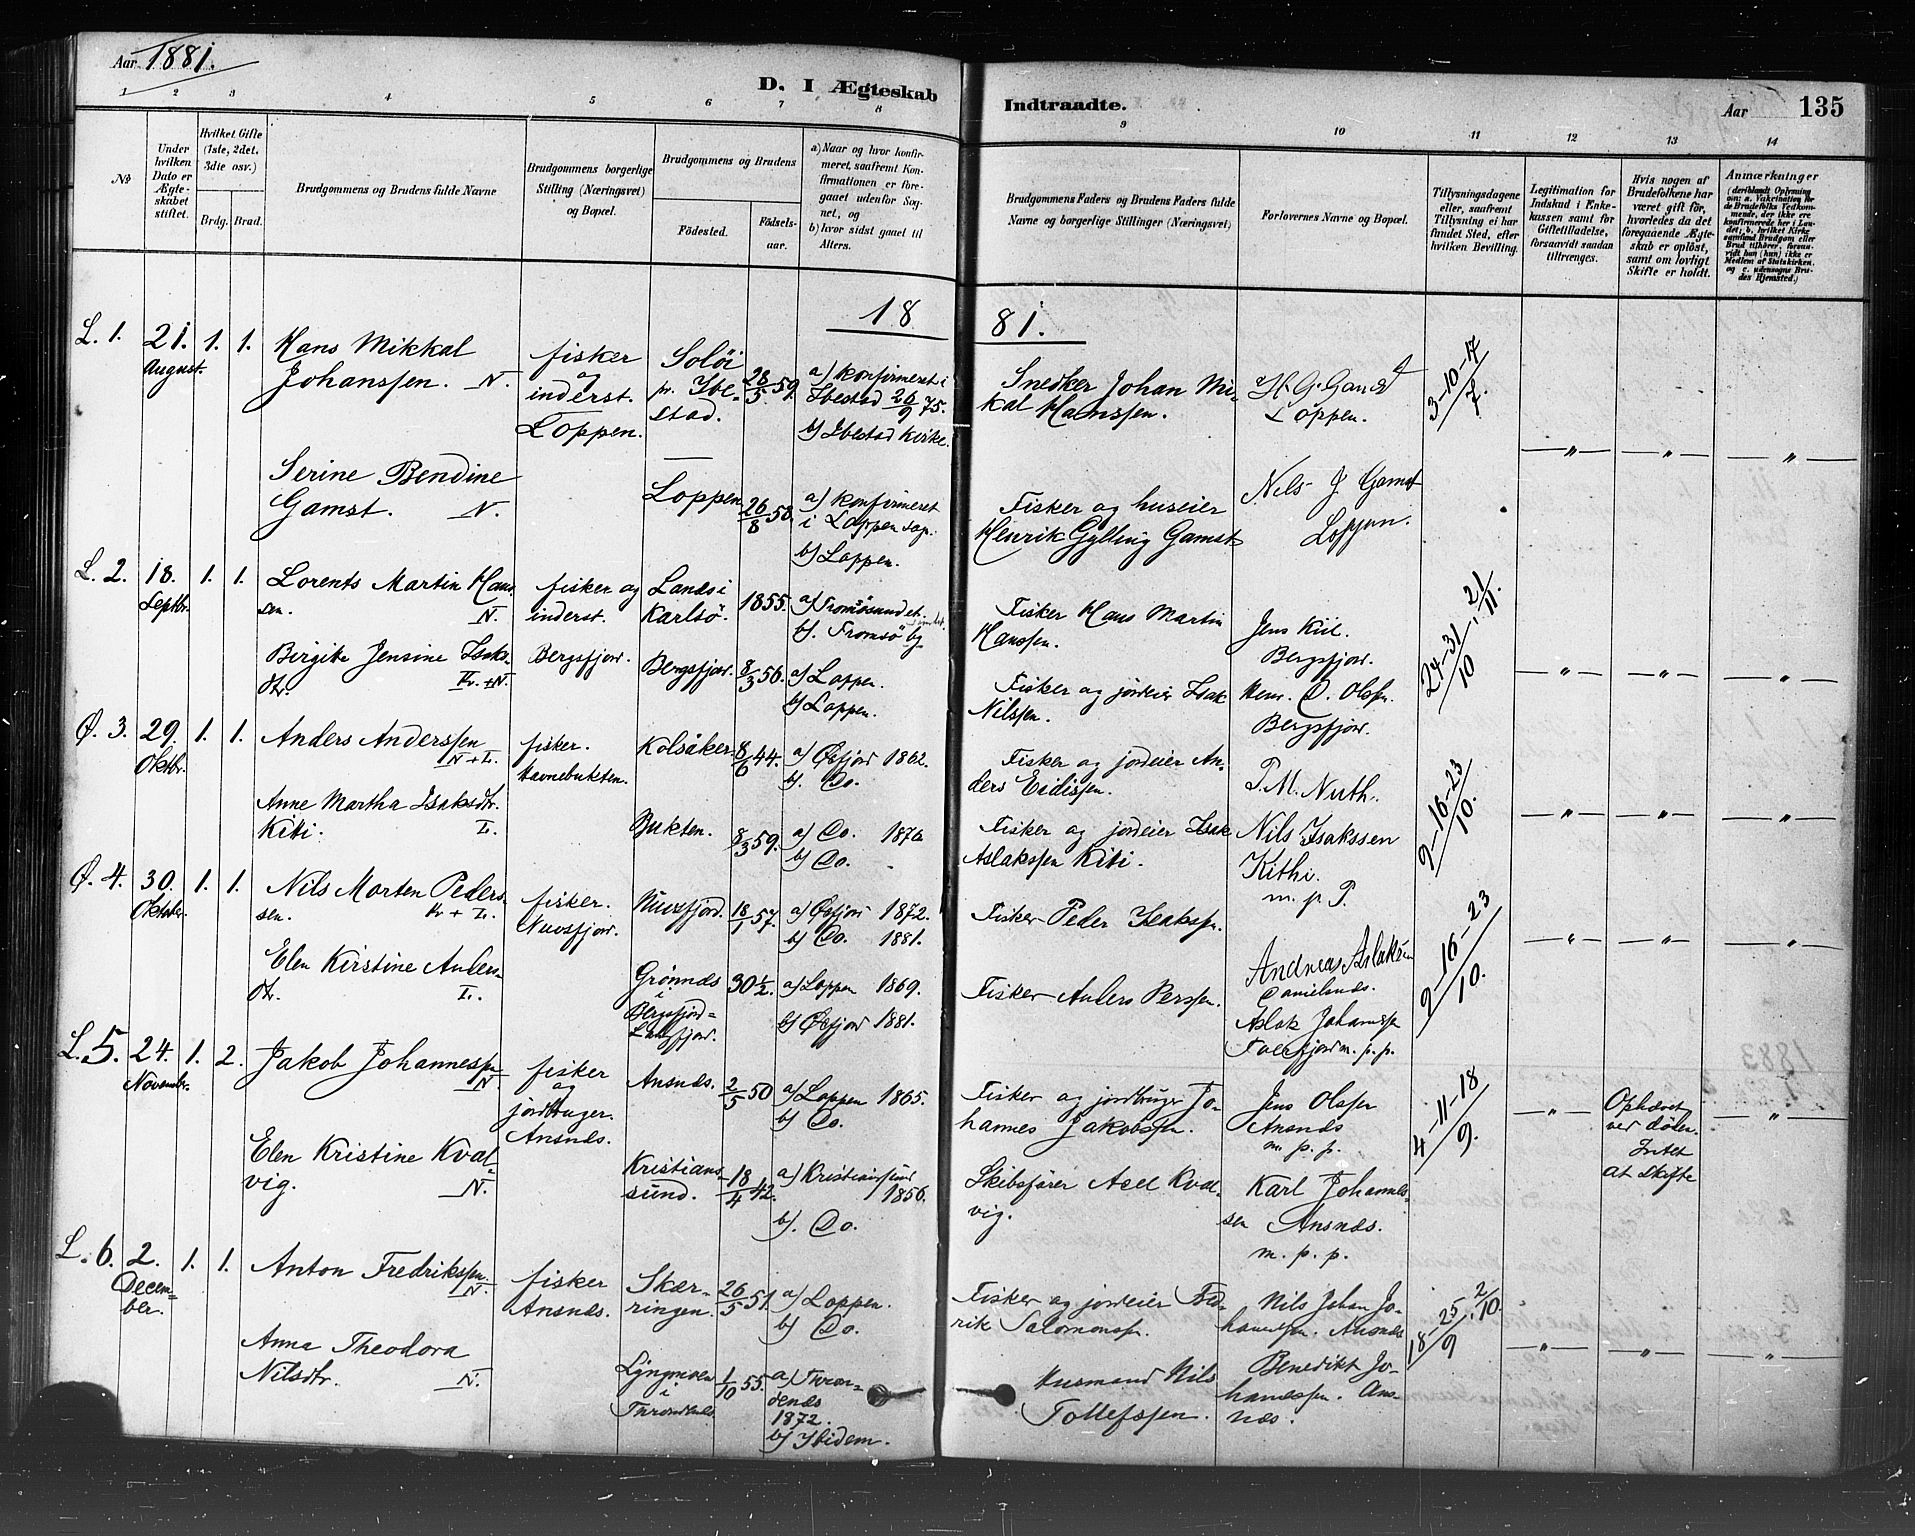 Aar 1881.
D. I Ægteskab
Indtraadte.
Aar
135
1 2 3 4 5 6 7 8 9 10 11 12 13 14
No
Under hvilken Dato er Ægteskabet stiftet.
Hvilket Gifte (1ste, 2det, 3die osv.)
Brdg. Brud.
Brudgommens og Brudens fulde Navne
Brudgommens borgerlige Stilling (Næringsvei) og Bopæl.
Brudgommens og Brudens
Fødested.
Fødselsaar.
a) Naar og hvor konfirmeret, saafremt Konfirmationen er foregaaet udenfor Sognet, og
b) hvor sidst gaaet til Alters.
Brudgommens Faders og Brudens Faders fulde Navne og borgerlige Stillinger (Næringsvei)
Forlovernes Navne og Bopæl.
Tillysningsdagene eller, saafremt Tillysning ei har fundet Sted, efter hvilken Bevilling.
Legitimation for Indskud i Enkekassen samt for Giftetilladelse, forsaavidt saadan tiltrænges.
Hvis nogen af Brudefolkene har været gift før, hvorledes da det foregaaende Ægteskab er opløst, samt om lovligt Skifte er holdt.
Anmærkninger
18
81.
L. 1. 21. August. 1. 1.
Hans Mikkal
Johanssen. N.
fisker
og
inderst.
Loppen.
Soløi
pr. Ibestad.
28/5 59.
a) konfirmeret i
Ibestad 26/9 75.
b) Ibestad kirke.
Snedker Johan Mikal
Hanssen.
H. G. Gamst
Loppen.
3-10-17/7.
Serine Bendine
Gamst. N.
Loppen
26/8 58.
a) konfirmeret
i Loppen sogn.
b) Loppen.
Fisker og huseier
Henrik Gylling Gamst
Nils J Gamst
Loppen.
L. 2. 18. Septbr. 1. 1.
Lorents Martin Hanssen.
N.
fisker og
inderst.
Bergsfjord.
Landsi
Karlsö.
1855.
a) Tromsösundet.
b). Tromsö
Fisker Hans Martin
Hanssen.
Jens Kiil.
Bergsfjor.
24-31/10, 21/11.
Birgitte Jensine Isaksdtr.
Kv. + N.
Bergsfjor.
8/3 56.
a) Loppen.
b) Loppen.
Fisker og jordeier Isak
Nilssen.
Olssen.
Bergsfjor.
Ø. 3. 29. Oktbr. 1. 1.
Anders Anderssen
N + L.
fisker.
Havnebukten.
Kolsåker
8/6 44.
a) Øxfjord 1862.
b). Do.
Fisker og jordeier Anders
Eidissen.
P. M. Nuth.
9-16-23/10.
Anne Martha Isaksdtr.
Kiti. L.
Bukten.
8/3 59.
a) Do. 1876
b) Do.
Fisker og jordeier Isak
Aslakssen Kiti.
Nils Isakssen
Kithi.
m. p. P.
Ø. 4. 30. Oktober. 1. 1.
Nils Morten Peders
sen. Kv + L.
fisker.
Nuvsfjor.
Nuvsfjord.
18/1 57.
a) Øxfjord 1872.
b) Do. 1881.
Fisker Peder Isakssen.
Andreas Aslaksen
9-16-23/10.
Elen Kirstine Andersdtr.
L.
Grønnæs
i
Bergsfjord=
Langfjor.
30½.
a) Loppen 1869.
b) Øxfjord 1881.
Fisker Anders Perssen.
Aslak Johanssen
m. p. p.
L. 5. 24. November. 1. 2.
Jakob Johannessen
N.
fisker
og
jordbruger.
Ansnæs.
Ansnæs.
2/5 50
a) Loppen 1865.
b) Do.
Fisker og jordbruger Johannes
Jakobssen.
Jens Olssen
Ansnæs
m. p. p.
4-11-18/9.
Ophævet
ved døden.
Intet
at skifte
Elen Kristine Kval
vig. N.
Kristians
sund.
18/4 42.
a) Kristianssund
1856.
b). Do.
Skibsfører Axel Kval
vig.
Karl Johannes
sen Ansnæs.
m. p. p.
L. 6. 2. December. 1. 1.
Anton Fredrikssen.
N.
fisker
Ansnæs.
Skær-
ringen.
26/5 51.
a) Loppen.
b) Do.
Fisker og jordeier Fred-
rik Salomonssen.
Nils Johan Jo-
hanessen. Ansnæs
18-25/9, 2/10.
Anna Theodora
Nilsdtr. N.
Throndenæs
1/10 55.
a) Thron-
denæs
1872.
b) Ibidem.
Husmand Nils
Tollefssen.
Benedikt Jo-
hanessen. Ans-
næs.
1883